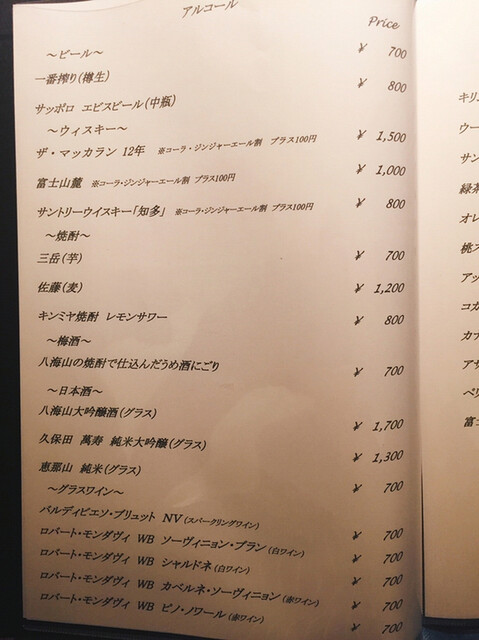 アルコール
Price
～ビール～
一番搾り(樽生) ¥ 700
サッポロ エビスビール(中瓶) ¥ 800
～ウィスキー～
ザ・マッカラン 12年 ※コーラ・ジンジャーエール割 プラス100円 ¥ 1,500
富士山麓 ※コーラ・ジンジャーエール割 プラス100円 ¥ 1,000
サントリーウイスキー「知多」 ※コーラ・ジンジャーエール割 プラス100円 ¥ 800
～焼酎～
三岳(芋) ¥ 700
佐藤(麦) ¥ 1,200
キンミヤ焼酎 レモンサワー ¥ 800
～梅酒～
八海山の焼酎で仕込んだうめ酒にごり ¥ 700
～日本酒～
八海山大吟醸酒(グラス) ¥ 1,700
久保田 萬寿 純米大吟醸(グラス) ¥ 1,300
恵那山 純米(グラス) ¥ 700
～グラスワイン～
バルディビエソ・ブリュット NV (スパークリングワイン) ¥ 700
ロバート・モンダヴィ WB ソーヴィニョン・ブラン (白ワイン) ¥ 700
ロバート・モンダヴィ WB シャルドネ (白ワイン) ¥ 700
ロバート・モンダヴィ WB カベルネ・ソーヴィニョン (赤ワイン) ¥ 700
ロバート・モンダヴィ WB ピノ・ノワール (赤ワイン) ¥ 700
キリ
ウー
サン
緑茶
オレ
アッ
コカ
アサ
ベリ